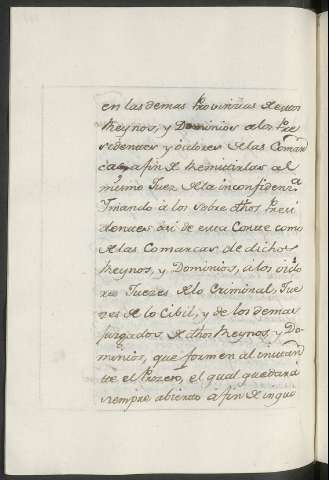 en las demas Provincias de estos
Reynos, y Dominios a los Pre
sidentes y oidores de las Comar
cas, a fin de Remitirlas al
mismo Juez de la inconfidenza
Imando à los sobre dhos Presi
dentes asi de esta Corte como
de las Comarcas de dichos
Reynos, y Dominios, à los oido
res Juezes de lo Criminal, Jue
zes de lo Cibil, y de los demas
juzgados de dhos Reynos, y Do
minios, que formen al instan
te el Prozeso, el qual quedarà
siempre abierto à fin de inqui